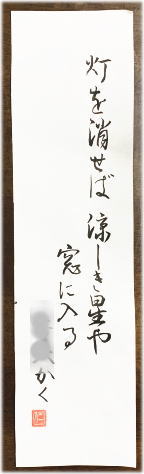 灯を消せば 涼しき星や
窓に入る
かく